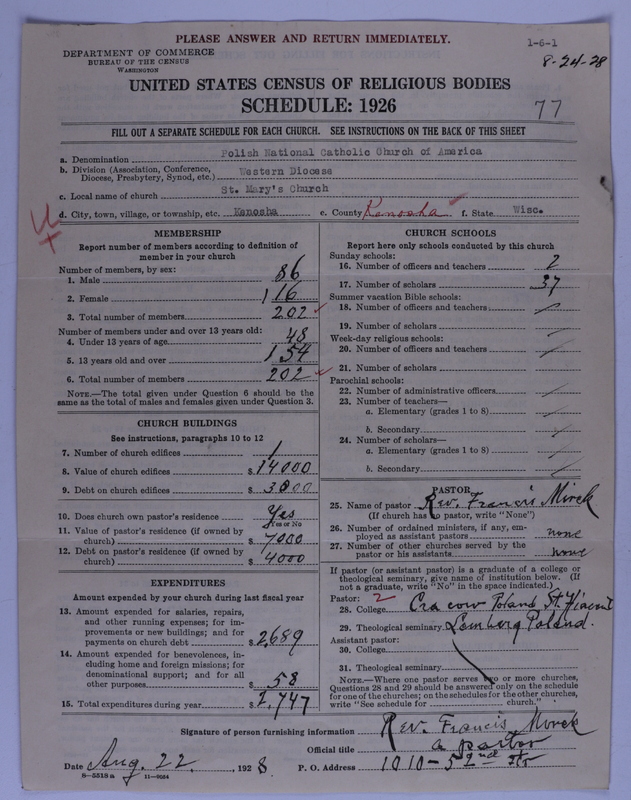 PLEASE ANSWER AND RETURN IMMEDIATELY.
1-6-1
8-24-28
DEPARTMENT OF COMMERCE
BUREAU OF THE CENSUS
WASHINGTON
UNITED STATES CENSUS OF RELIGIOUS BODIES
SCHEDULE: 1926
77
FILL OUT A SEPARATE SCHEDULE FOR EACH CHURCH. SEE INSTRUCTIONS ON THE BACK OF THIS SHEET
a. Denomination Polish National Catholic Church of America
b. Division (Association, Conference, Diocese, Presbytery, Synod, etc.) Western Diocese
c. Local name of church St. Mary's Church
d. City, town, village, or township, etc. Kenosha e. County Kenosha f. State Wisc.
MEMBERSHIP
Report number of members according to definition of
member in your church
Number of members, by sex:
1. Male 86
2. Female 116
3. Total number of members 202
Number of members under and over 13 years old:
4. Under 13 years of age 48
5. 13 years old and over 154
6. Total number of members 202
NOTE.—The total given under Question 6 should be
same as the total of males and females given under Question 3.
CHURCH BUILDINGS
See instructions, paragraphs 10 to 12
7. Number of church edifices 1
8. Value of church edifices $14000
9. Debt on church edifices $3000
10. Does church own pastor's residence Yes
Yes or No
11. Value of pastor's residence (if owned by
church) $7000
12. Debt on pastor's residence (if owned by
church) $4000
EXPENDITURES
Amount expended by your church during last fiscal year
13. Amount expended for salaries, repairs,
and other running expenses; for im-
provements or new buildings; and for
payments on church debt $2689
14. Amount expended for benevolences, in-
cluding home and foreign missions; for
denominational support; and for all
other purposes $58
15. Total expenditures during year $2,747
CHURCH SCHOOLS
Report here only schools conducted by this church
Sunday schools:
16. Number of officers and teachers 2
17. Number of scholars 37
Summer vacation Bible schools:
18. Number of officers and teachers
19. Number of scholars
Week-day religious schools:
20. Number of officers and teachers
21. Number of scholars
Parochial schools:
22. Number of administrative officers
23. Number of teachers—
a. Elementary (grades 1 to 8)
b. Secondary
24. Number of scholars—
a. Elementary (grades 1 to 8)
b. Secondary
PASTOR
25. Name of pastor Rev. Francis Mirek
(If church has no pastor, write "None")
26. Number of ordained ministers, if any, em-
ployed as assistant pastors none
27. Number of other churches served by the
pastor or his assistants none
If pastor (or assistant pastor) is a graduate of a college or
theological seminary, give name of institution below. (If
not a graduate, write "No" in the space indicated.)
Pastor: 2
28. College Cracow Poland St.
29. Theological seminary Lemberg Poland.
Assistant pastor:
30. College
31. Theological seminary
NOTE.—Where one pastor serves two or more churches,
Questions 28 and 29 should be answered only on the schedule
for one of the churches; on the schedules for the other churches,
write "See schedule for church."
Signature of person furnishing information Rev. Francis Mirek
Official title a pastor
Date Aug. 22, 1928 P. O. Address 1010-52nd Str
8-5518a 11-9024